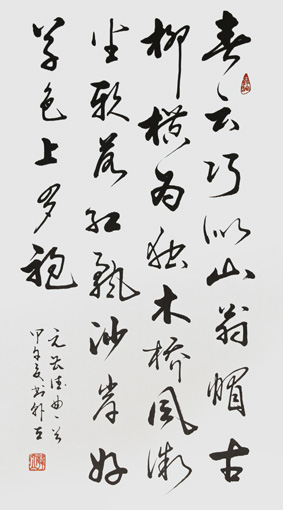 春云巧似山翁帽古
柳横为独木桥风微
尘软落红飘沙岸好
草色上罗袍
元曹德曲一首
甲午夏书